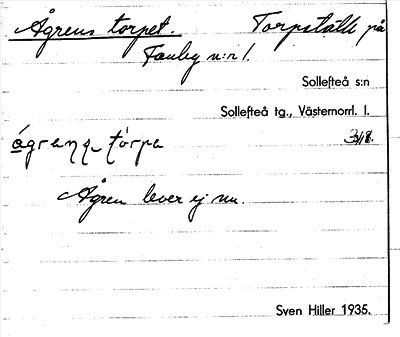 Ågrens torpet. Torpställe på
Fanby n:r 1.
Sollefteå s:n
Sollefteå tg., Västernorrl. l.
Ågren lever ej nu.
Sven Hiller 1935.